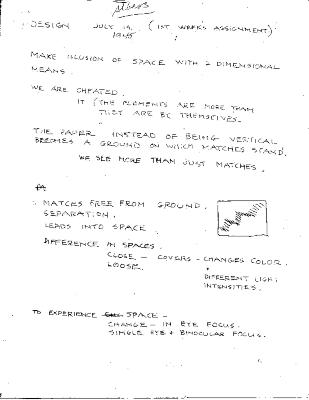 Albers
DESIGN JULY 19, (1ST WEEK'S ASSIGNMENT)
1945
MAKE ILLUSION OF SPACE WITH 2 DIMENSIONAL
MEANS.
WE ARE CHEATED.
IT (THE ELEMENTS ARE MORE THAN
THEY ARE BY THEMSELVES.
THE PAPER INSTEAD OF BEING VERTICAL
BECOMES A GROUND ON WHICH MATCHES STAND.
WE SEE MORE THAN JUST MATCHES.
MATCHES FREE FROM GROUND.
SEPARATION.
LEADS INTO SPACE
DIFFERENCE IN SPACES.
CLOSE - COVERS - CHANGES COLOR.
LOOSE. +
DIFFERENT LIGHT
INTENSITIES.
TO EXPERIENCE SPACE -
CHANGE - IN EYE FOCUS.
SINGLE EYE + BINOCULAR FOCUS.